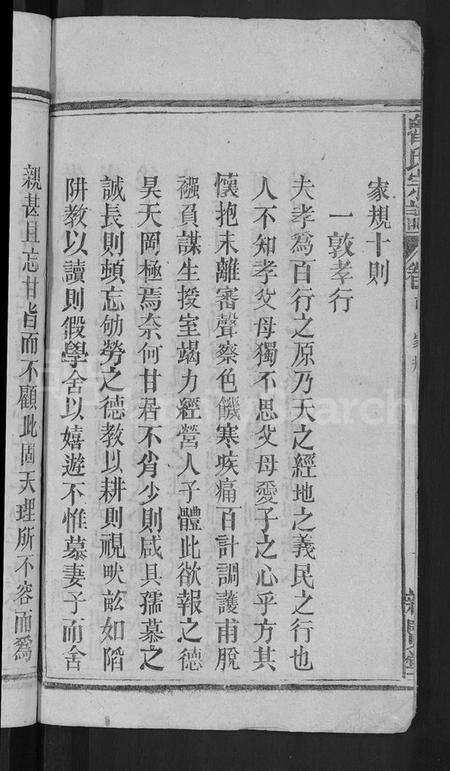 家規十則
一敦孝行
夫孝為百行之原乃天之經地之義民之行也
人不知孝父母獨不思父母愛子之心乎方其
懷抱未離審聲察色饑寒疾痛百計調護甫脫
襁負謀生授室竭力經營人子體此欲報之德
昊天罔極焉奈何甘君不肖少則咸具孺慕之
誠長則頓忘劬勞之德教以耕則視畎畝如陷
阱教以讀則假學舍以嬉遊不惟慕妻子而舍
親甚且忘甘旨而不顧此固天理所不容而為
氏宗譜 卷首 家規